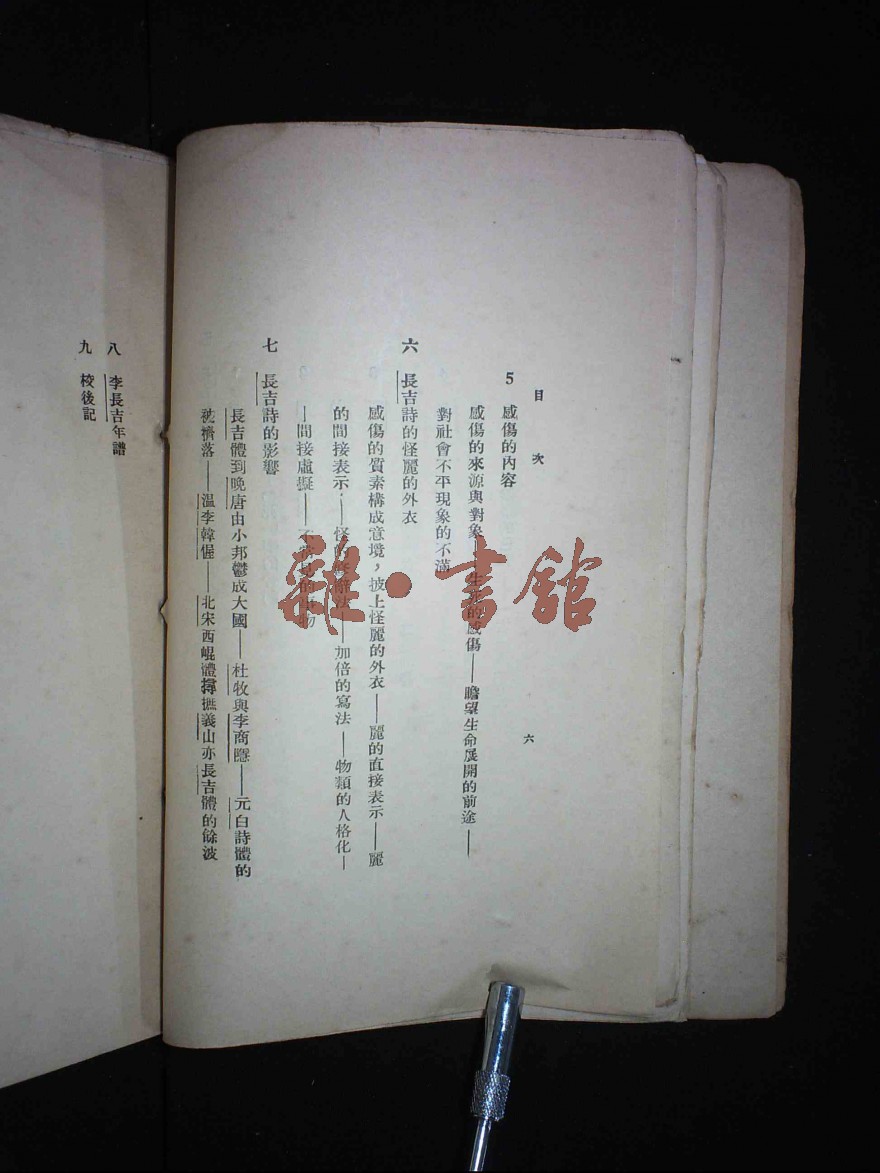 目次
六
5 感傷的內容
感傷的來源與對象——生的感傷——瞻望生命展開的前途——
對社會不平現象的不滿
六 長吉詩的怪麗的外衣
感傷的質素構成意境，披上怪麗的外衣——麗的直接表示——麗
的間接表示：——怪的修辭法——加倍的寫法——物類的人格化—
—間接虛擬——見的事物
七 長吉詩的影響
長吉體到晚唐由小邦鬱成大國——杜牧與李商隱——元白詩體的
被擠落——温李韓偓——北宋西崐體撏撦義山亦長吉體的餘波
八 李長吉年譜
九 校後記
雜·書館